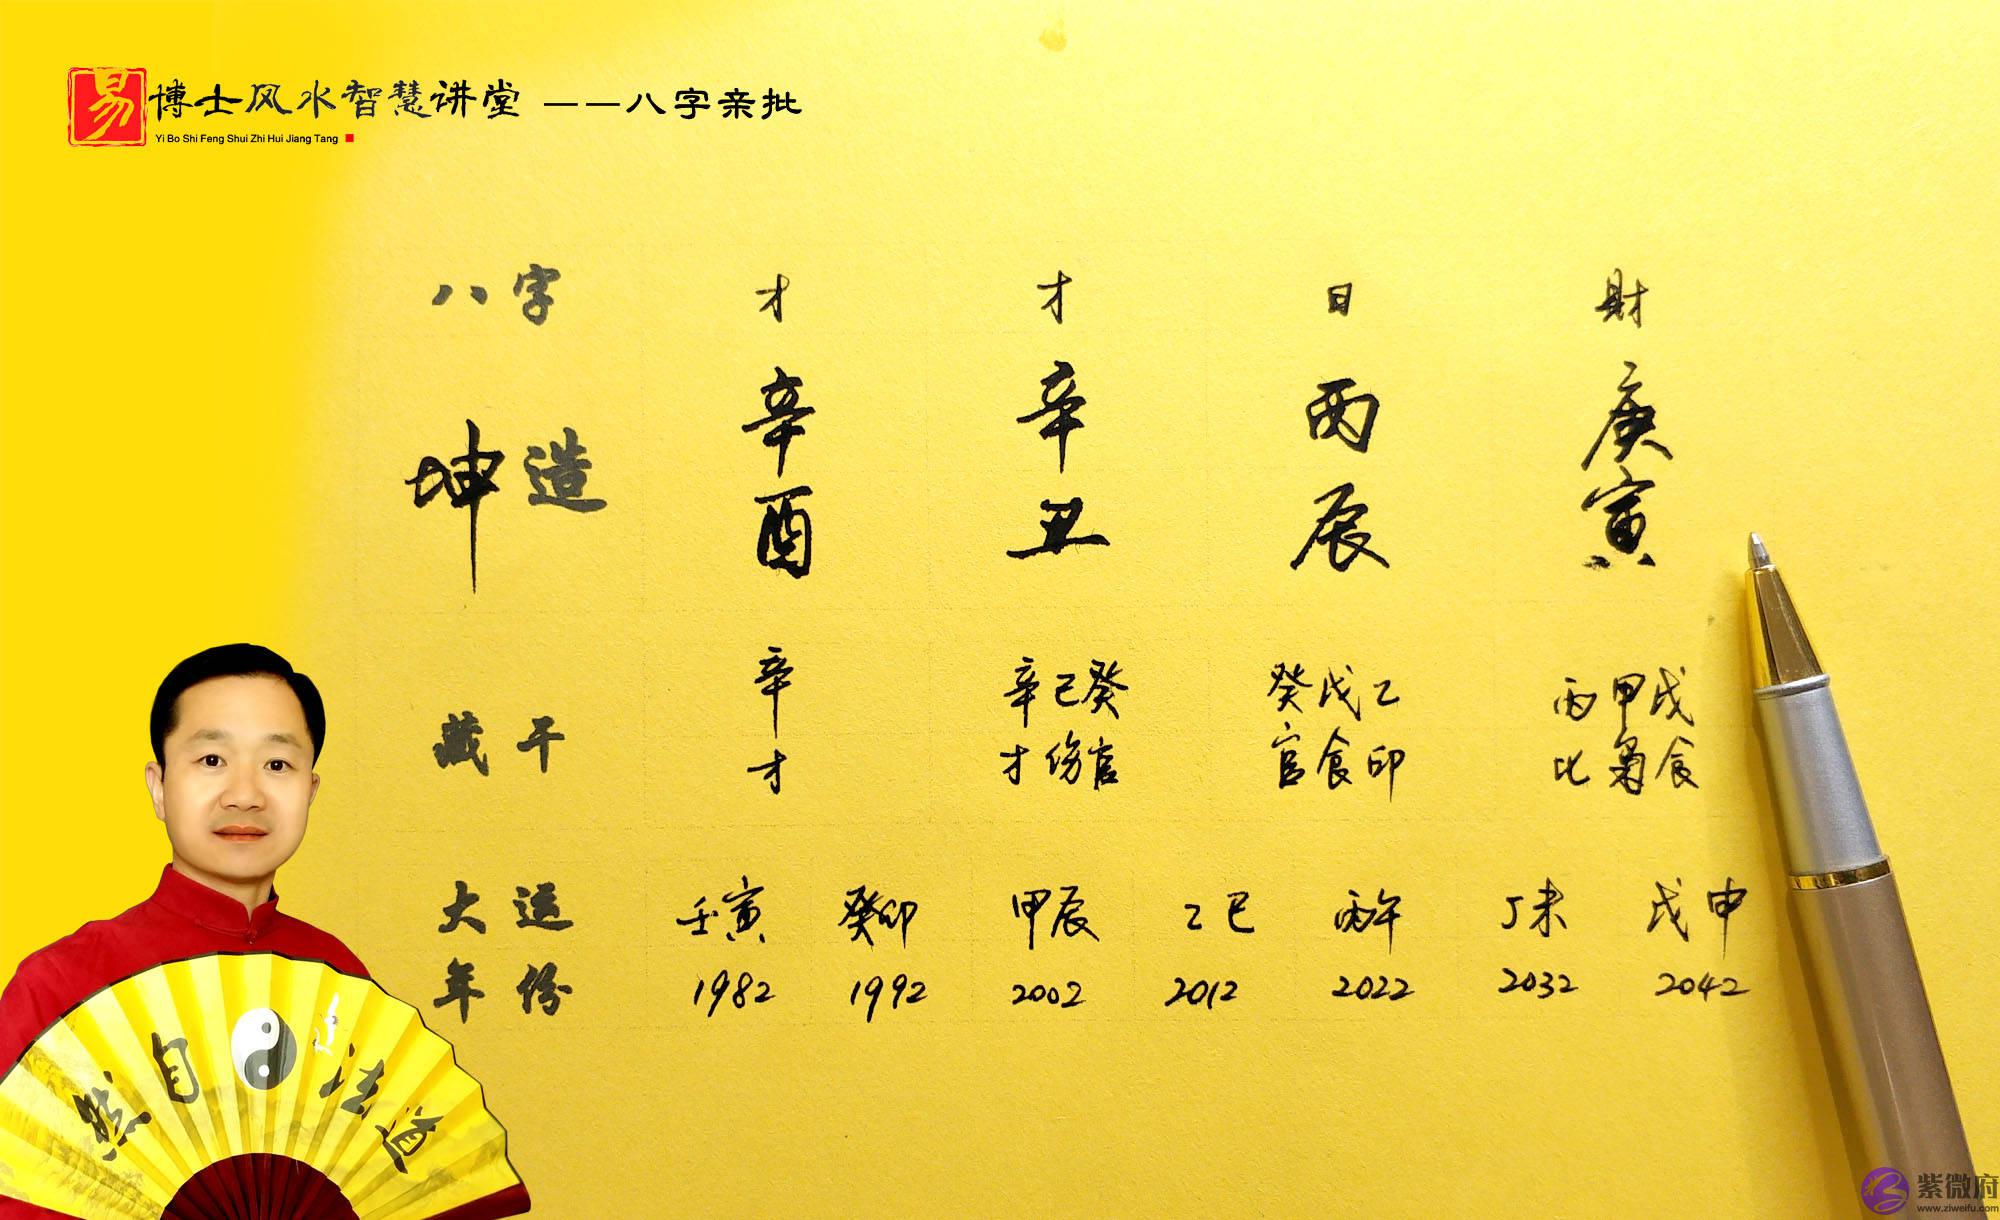 易 博士风水智慧讲堂 ——八字亲批
Yi Bo Shi Feng Shui Zhi Hui Jiang Tang
八字 才 才 日 财
坤造 辛酉 辛丑 丙辰 庚寅
藏干 辛 辛己癸 癸戊乙 丙甲戊
才 才伤官 官食印 比枭食
大运 壬寅 癸卯 甲辰 乙巳 丙午 丁未 戊申
年份 1982 1992 2002 2012 2022 2032 2042
道法自然
紫微府
www.ziweifu.com